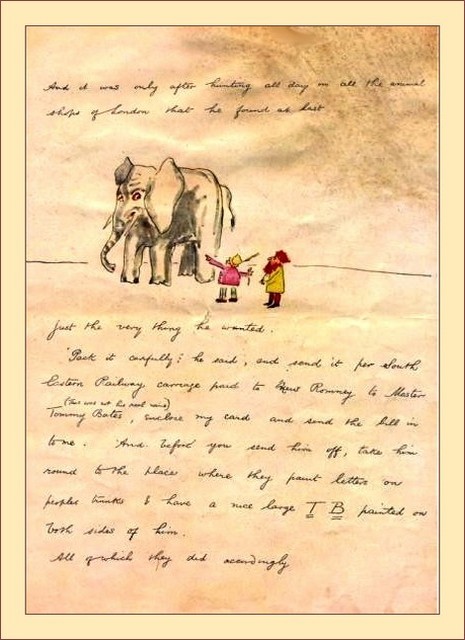 And it was only after hunting all day in all the animal
shops of London that he found at last
just the very thing he wanted.
"Pack it carefully" he said, and send it per South
Eastern Railway carriage paid to New Romney to Master
(this was not his real name)
Tommy Bates, enclose my card and send the bill in
to me. And before you send him off, take him
round to the place where they paint letters on
peoples trunks & have a nice large T B painted on
both sides of him.
All of which they did accordingly